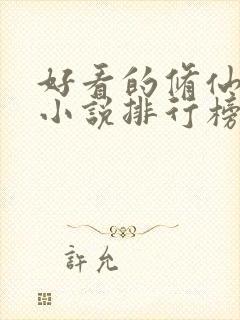 好看的修仙
小说排行榜
許允